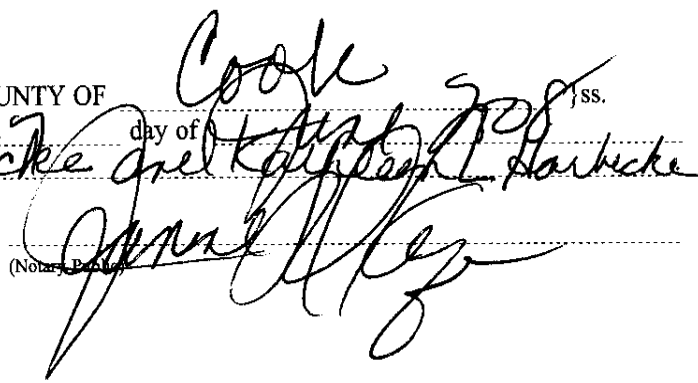 UNTY OF Cook
day of June 2008 }ss.
cke and Kathleen L Harbecke
(Notary Public)